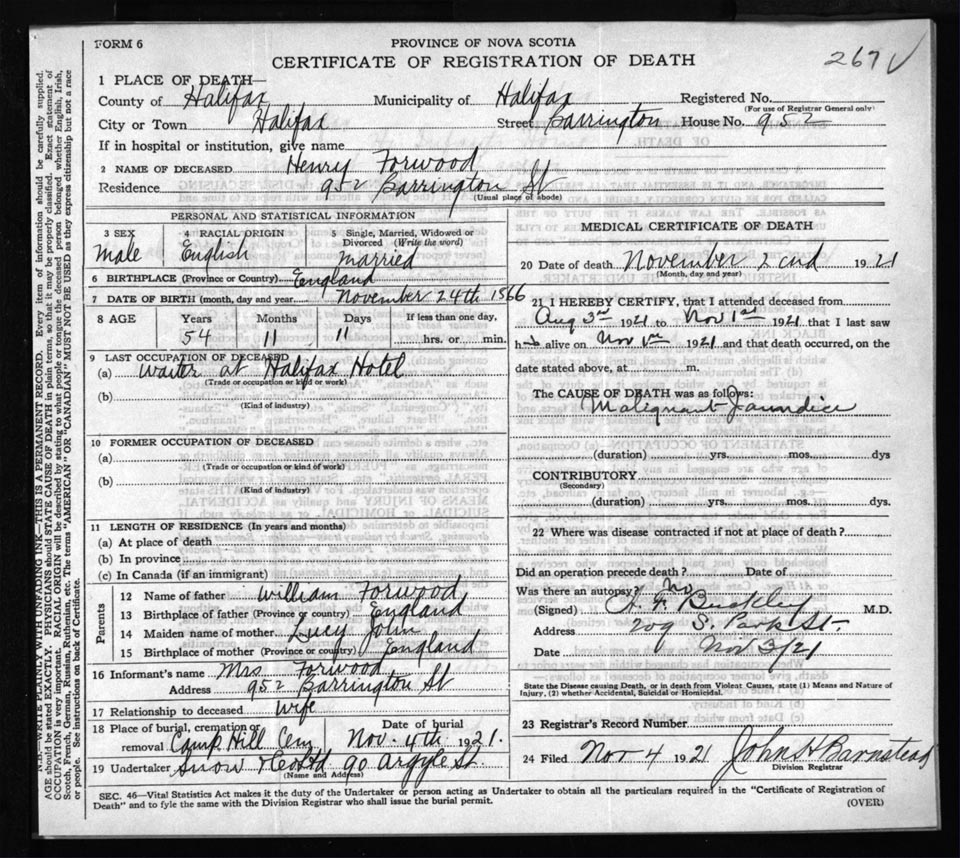 FORM 6
PROVINCE OF NOVA SCOTIA
CERTIFICATE OF REGISTRATION OF DEATH
267 √
1 PLACE OF DEATH—
County of Halifax Municipality of Halifax Registered No.
(For use of Registrar General only)
City or Town Halifax Street Barrington House No. 952
If in hospital or institution, give name
2 NAME OF DECEASED Henry Forwood
Residence 952 Barrington St
(Usual place of abode)
PERSONAL AND STATISTICAL INFORMATION
3 SEX 4 RACIAL ORIGIN 5 Single, Married, Widowed or
Divorced (Write the word)
Male English Married
6 BIRTHPLACE (Province or Country) England
7 DATE OF BIRTH (month, day and year November 24th 1866
8 AGE Years Months Days If less than one day,
54 11 11 hrs. or min.
9 LAST OCCUPATION OF DECEASED
(a) Waiter at Halifax Hotel
(Trade or occupation or kind or work)
(b)
(Kind of industry)
10 FORMER OCCUPATION OF DECEASED
(a)
(Trade or occupation or kind of work)
(b)
(Kind of industry)
11 LENGTH OF RESIDENCE (In years and months)
(a) At place of death
(b) In province
(c) In Canada (if an immigrant)
Parents
12 Name of father William Forwood
13 Birthplace of father (Province or country) England
14 Maiden name of mother Lucy John
15 Birthplace of mother (Province or country) England
16 Informant's name Mrs Forwood
Address 952 Barrington St
17 Relationship to deceased Wife
18 Place of burial, cremation or Date of burial
removal Camp Hill Cem Nov. 4th 1921.
19 Undertaker Snow & Co Ltd 90 Argyle St.
(Name and Address)
MEDICAL CERTIFICATE OF DEATH
20 Date of death November 2nd 1921
(Month, day and year)
21 I HEREBY CERTIFY, that I attended deceased from
Aug 3rd 1921 to Nov 1st 1921 that I last saw
h alive on Nov 1st 1921 and that death occurred, on the
date stated above, at m.
The CAUSE OF DEATH was as follows:
Malignant Jaundice
(duration) yrs. mos. dys
CONTRIBUTORY
(Secondary)
(duration) yrs. mos. dys.
22 Where was disease contracted if not at place of death?
Did an operation precede death? Date of
Was there an autopsy? No
(Signed) Buckley M.D.
Address 209 S. Park St.
Date Nov 3/21
State the Disease causing Death, or in death from Violent Causes, state (1) Means and Nature of
Injury, (2) whether Accidental, Suicidal or Homicidal.
23 Registrar's Record Number
24 Filed Nov 4 1921 John H Barnstead
Division Registrar
SEC. 46—Vital Statistics Act makes it the duty of the Undertaker or person acting as Undertaker to obtain all the particulars required in the "Certificate of Registration of
Death" and to fyle the same with the Division Registrar who shall issue the burial permit.
(OVER)
N.B.—WRITE PLAINLY WITH UNFADING INK—THIS IS A PERMANENT RECORD. Every item of information should be carefully supplied.
AGE should be stated EXACTLY. PHYSICIANS should STATE CAUSE OF DEATH in plain terms, so that it may be properly classified. Exact statement of
OCCUPATION is very important. RACIAL ORIGIN will be described by stating to what people or tongue the deceased person belonged, whether English, Irish,
Scotch, French, German, Russian, Ruthenian, etc. The terms "AMERICAN" or "CANADIAN" MUST NOT BE USED as they express citizenship but not a race
or people. See instructions on back of Certificate.